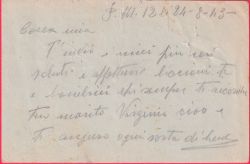 P.M. 12 li 24-8-43-
Cara mia
T'invio i miei più cari
saluti e affettuosi bacioni a te
e bambini e per sempre ti ricorda
tuo marito Virginio ciao e
ti auguro ogni sorta di bene